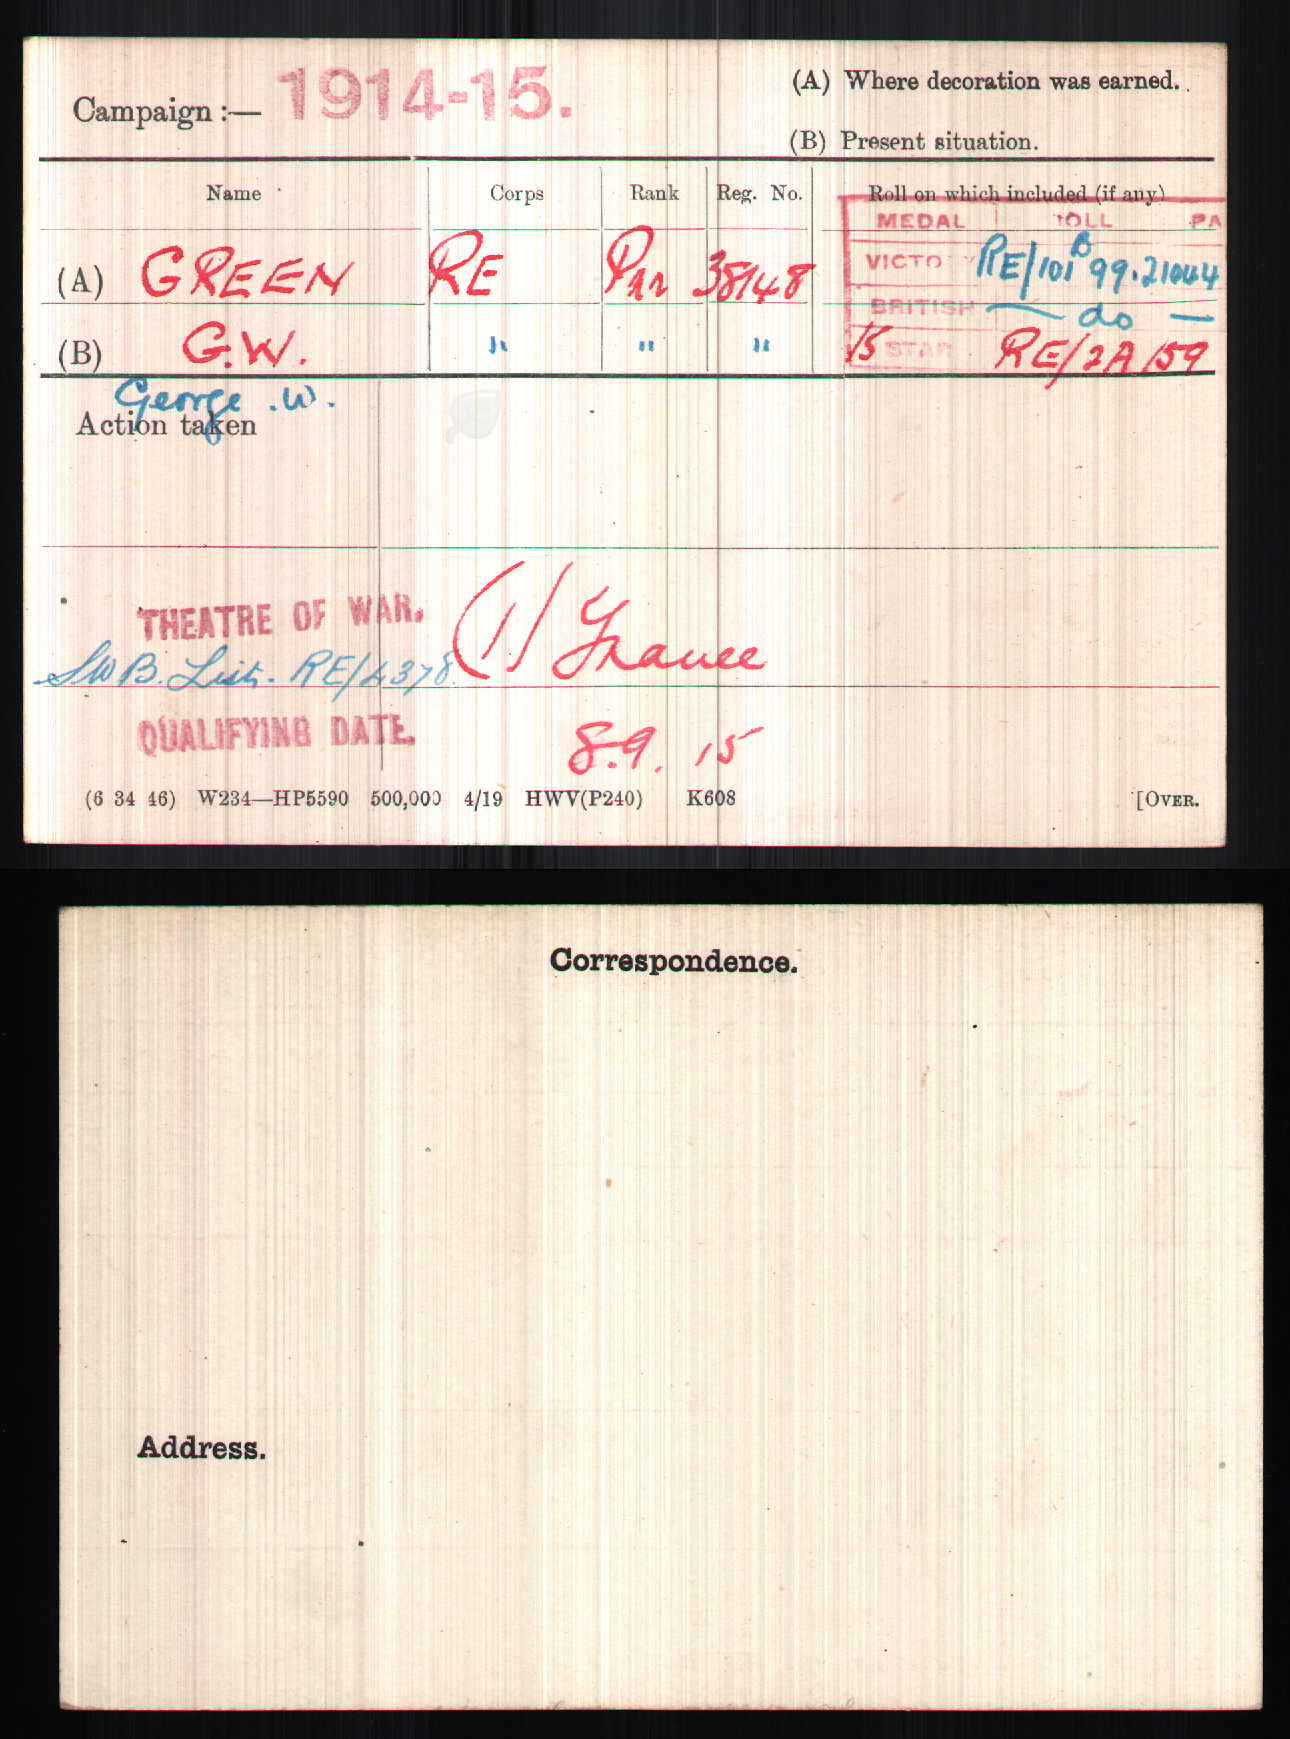 Campaign :— 1914-15.
(A) Where decoration was earned.
(B) Present situation.
Name Corps Rank Reg. No. Roll on which included (if any)
MEDAL ROLL PA
(A) GREEN RE Pnr 38148 VICTO Y RE/101 B 99. 21044
BRITISH — do —
(B) G.W. " " " 15 STAR RE/2A/59
George .W.
Action taken
THEATRE OF WAR. (1) France
SWB. List. RE/4378.
QUALIFYING DATE. 8.9.15
(6 34 46) W234—HP5590 500,000 4/19 HWV(P240) K608 [OVER.
Correspondence.
Address.